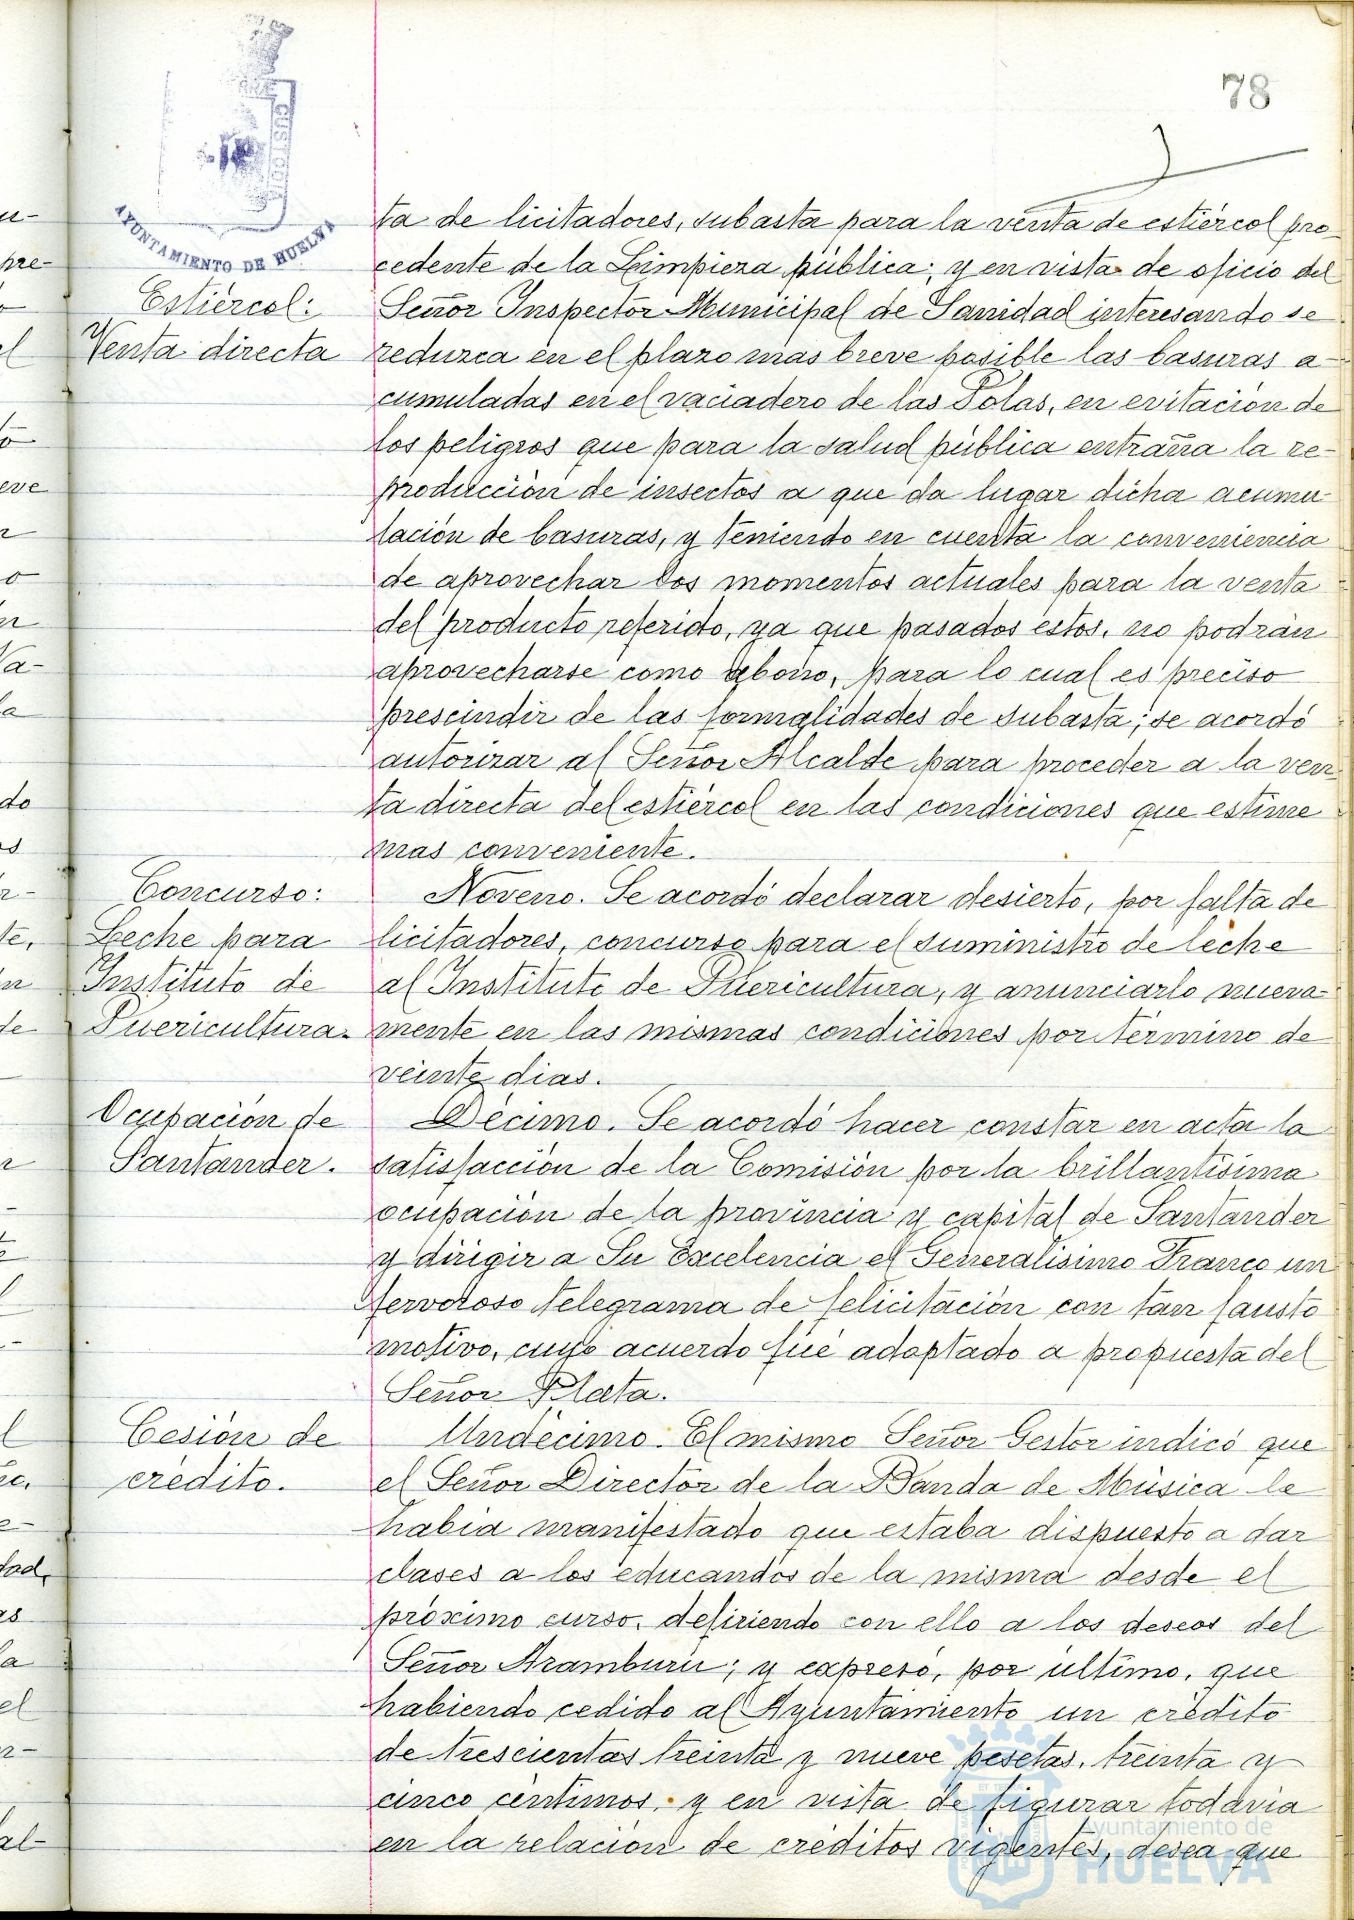 78
ARÆ
CUSTODIA
AYUNTAMIENTO DE HUELVA
ta de licitadores, subasta para la venta de estiércol pro-
cedente de la Limpieza pública; y en vista de oficio del
Estiércol:
Señor Inspector Municipal de Sanidad interesando se
Venta directa
reduzca en el plazo mas breve posible las basuras a-
cumuladas en el vaciadero de las Polas, en evitación de
los peligros que para la salud pública entraña la re-
producción de insectos a que da lugar dicha acumu-
lación de basuras, y teniendo en cuenta la conveniencia
de aprovechar los momentos actuales para la venta
del producto referido, ya que pasados estos, no podrán
aprovecharse como abono, para lo cual es preciso
prescindir de las formalidades de subasta; se acordó
autorizar al Señor Alcalde para proceder a la ven-
ta directa del estiércol en las condiciones que estime
mas conveniente.
Concurso:
Leche para
Instituto de
Puericultura.
Noveno. Se acordó declarar desierto, por falta de
licitadores, concurso para el suministro de leche
al Instituto de Puericultura, y anunciarlo nueva-
mente en las mismas condiciones por término de
veinte dias.
Ocupación de
Santander.
Décimo. Se acordó hacer constar en acta la
satisfacción de la Comisión por la brillantísima
ocupación de la provincia y capital de Santander
y dirigir a Su Excelencia el Generalísimo Franco un
fervoroso telegrama de felicitación con tan fausto
motivo, cuyo acuerdo fué adoptado a propuesta del
Señor Plata.
Cesión de
crédito.
Undécimo. El mismo Señor Gestor indicó que
el Señor Director de la Banda de Música le
habia manifestado que estaba dispuesto a dar
clases a los educandos de la misma desde el
próximo curso, defiriendo con ello a los deseos del
Señor Aramburu; y expresó, por último, que
habiendo cedido al Ayuntamiento un crédito
de trescientas treinta y nueve pesetas, treinta y
cinco céntimos, y en vista de figurar todavia
en la relación de créditos vigentes, desea que
Ayuntamiento de
HUELVA